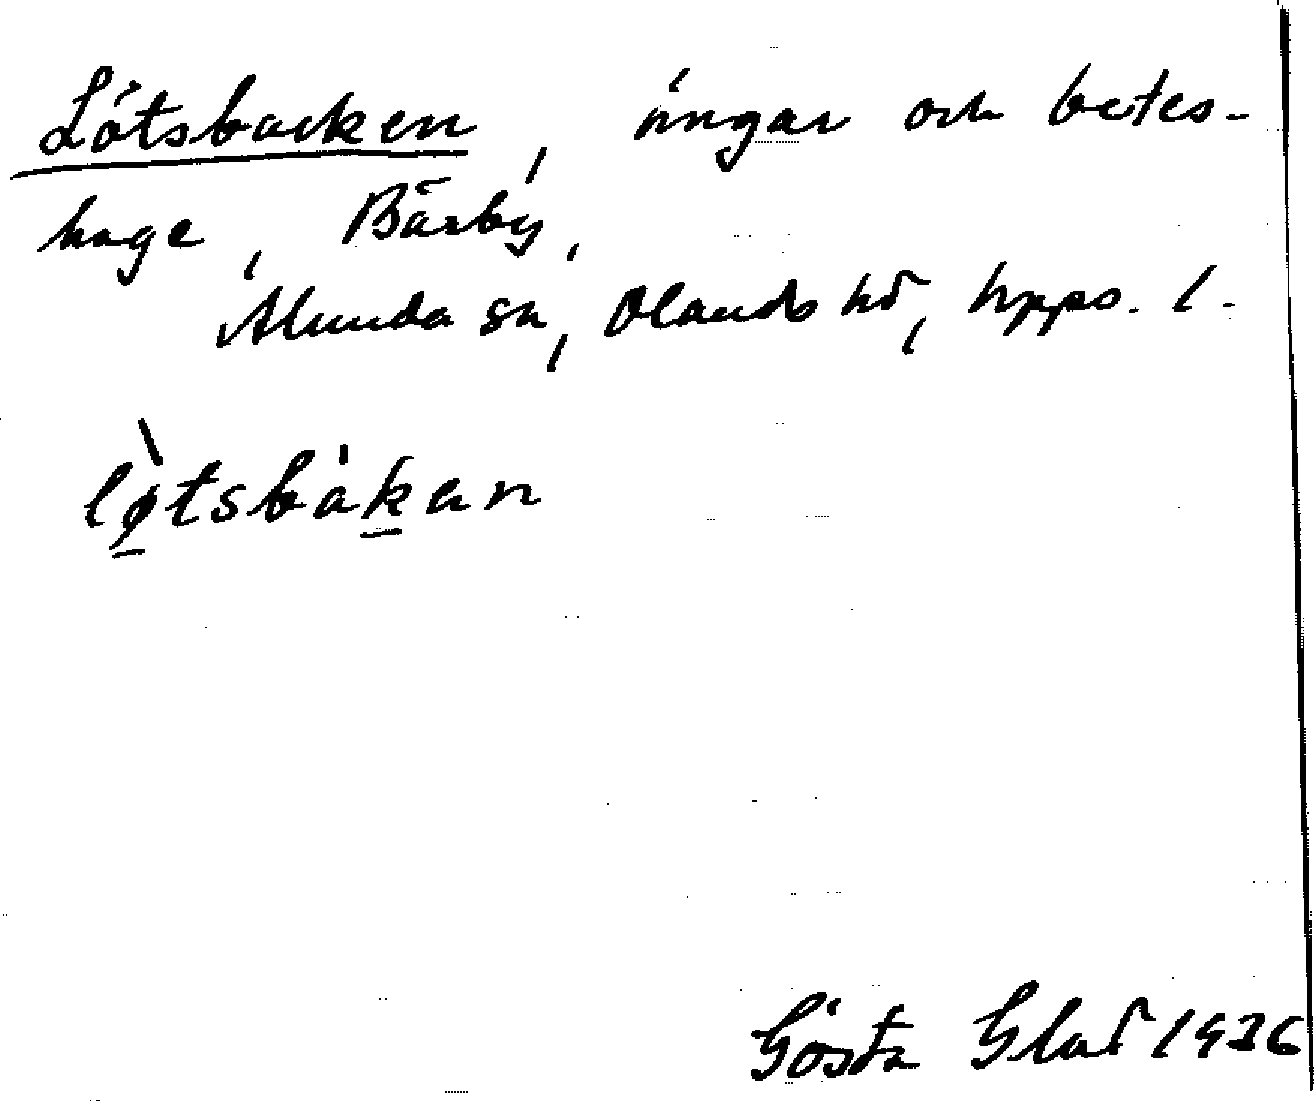 Lötsbacken, ängar och betes-
hage, Bärby,
Alunda sn, Olands hd, Upps. l.
lø̀tsbàkan
Gösta Glad 1936